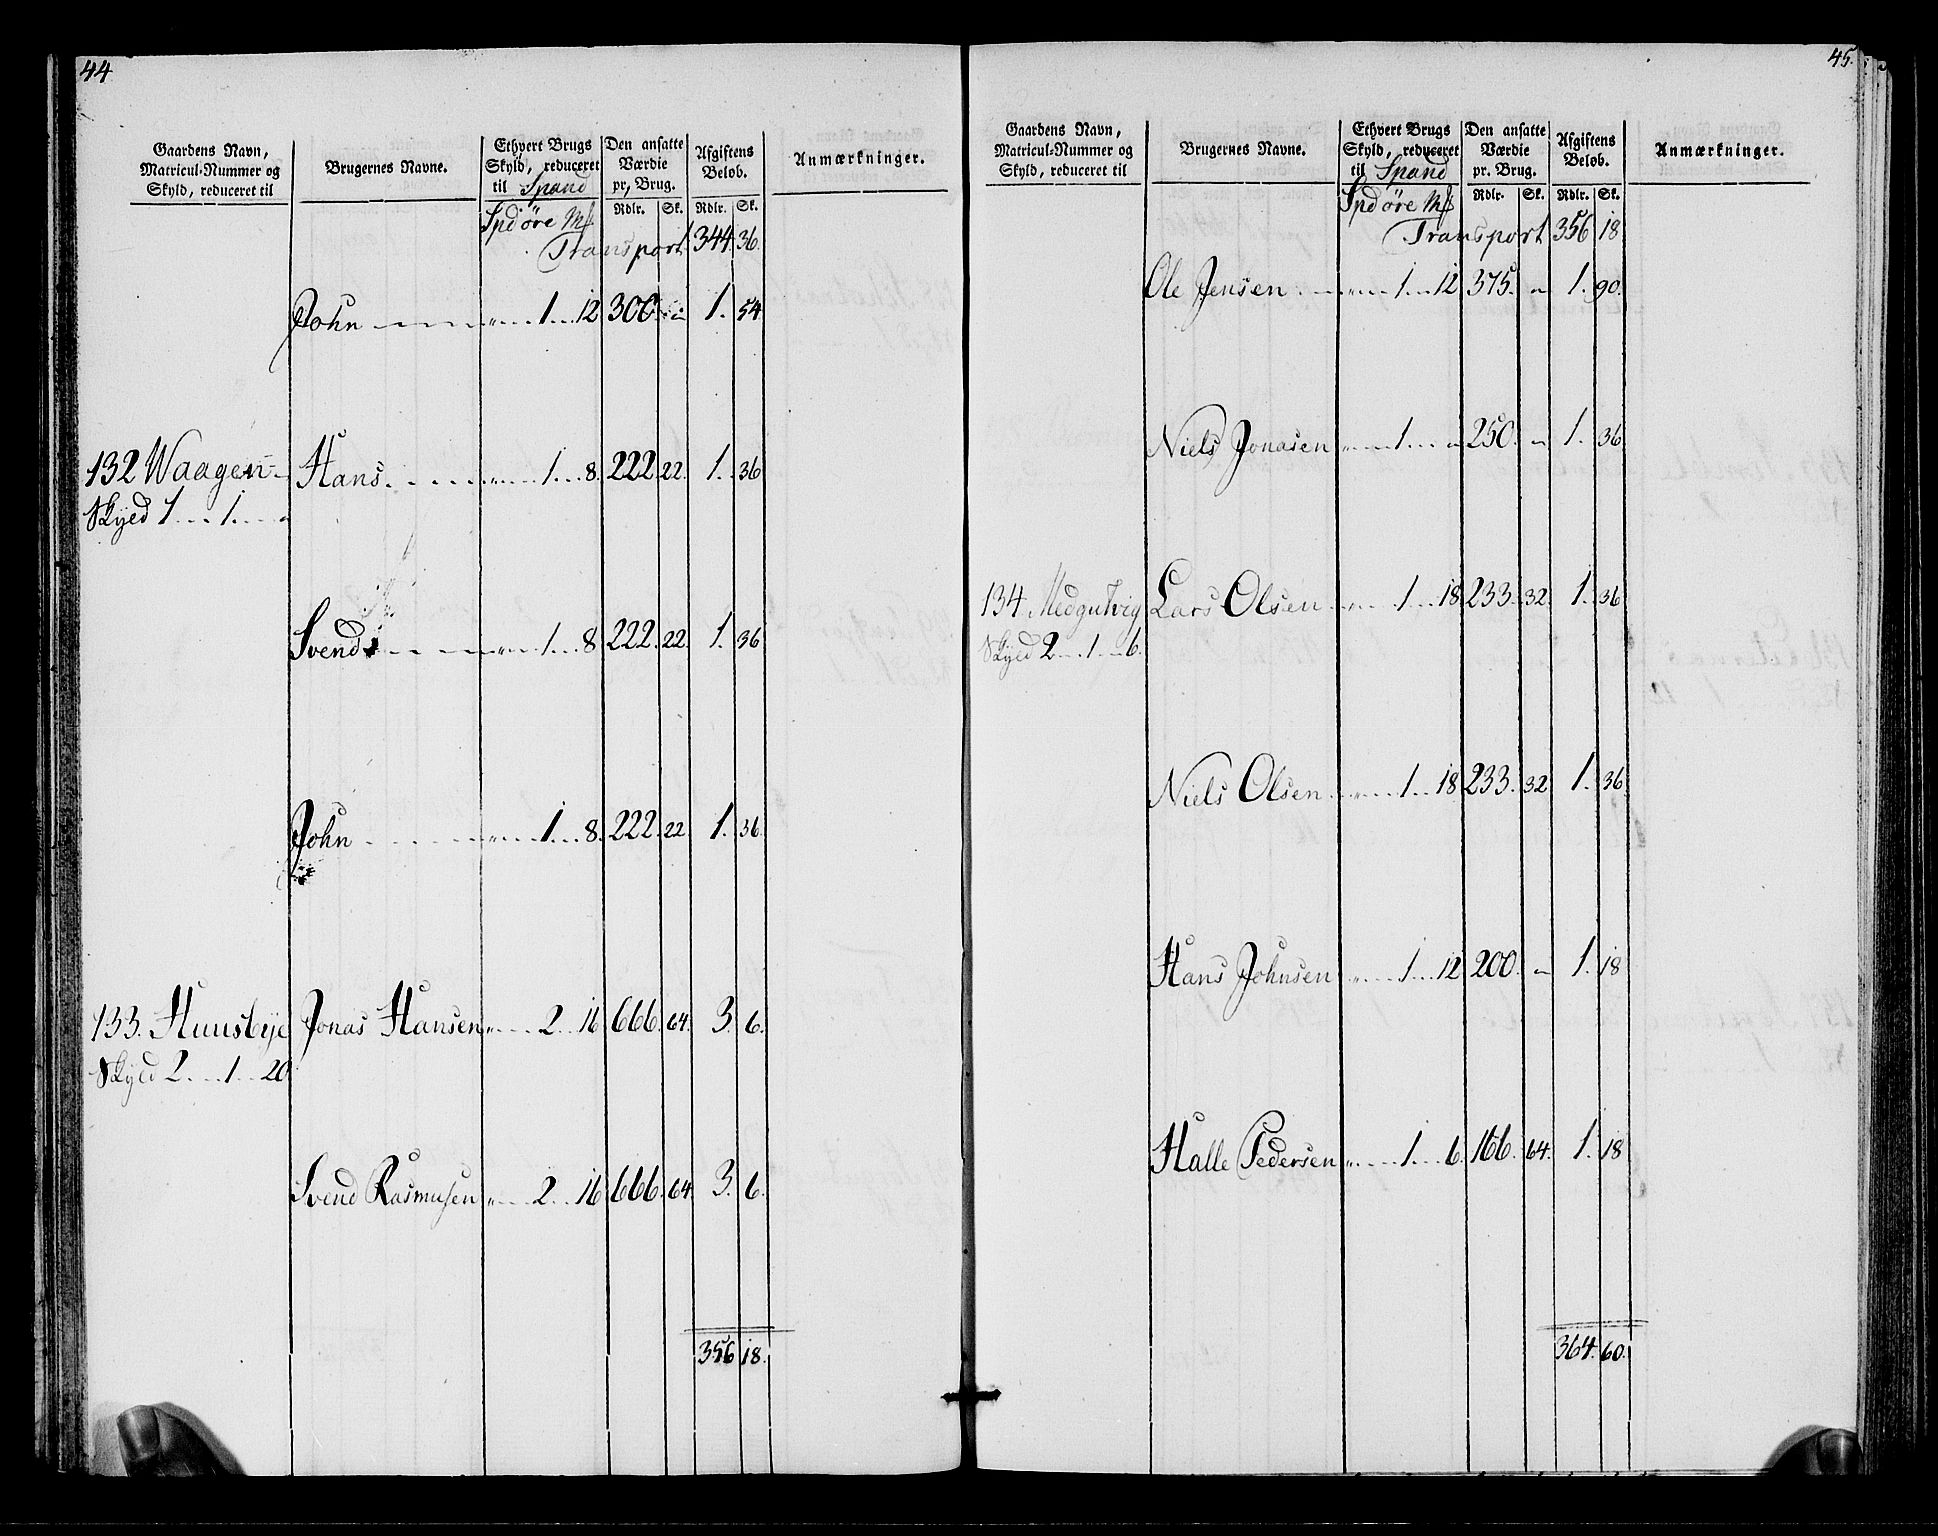 44
Gaardens Navn, Matricul-Nummer og Skyld, reduceret til
Brugernes Navne.
Ethvert Brugs Skyld, reduceret til Spand
Den ansatte Værdie pr. Brug.
Afgiftens Beløb.
Anmærkninger.
Rdlr. Sk. Rdlr. Sk.
Spd öre Mk
Transport 344. 36.
John 1 12 300 1. 54
132 Waagen Hans 1 8. 222. 22. 1. 36
Skyld 1 1
Svend 1 8 222. 22. 1. 36
John 1 8. 222. 22. 1. 36.
133. Huusbye Jonas Hansen 2 16 666. 64. 3. 6.
Skyld 2 1 20
Svend Rasmusen 2 16 666. 64. 3. 6.
356 18.
45.
Gaardens Navn, Matricul-Nummer og Skyld, reduceret til
Brugernes Navne.
Ethvert Brugs Skyld, reduceret til Spand
Den ansatte Værdie pr. Brug.
Afgiftens Beløb.
Anmærkninger.
Rdlr. Sk. Rdlr. Sk.
Spd öre Mk
Transport 356 18
Ole Jensen 1 12 375. 1. 90.
Niels Jonasen 1 250. 1. 36
134 Lars Olsen 1 18 233. 32. 1. 36
Skyld 2 1 6.
Niels Olsen 1 18 233. 32 1. 36
Hans Johnsen 1 12 200. 1. 18
Halle Pedersen 1 6. 166. 64. 1. 18
364. 60.